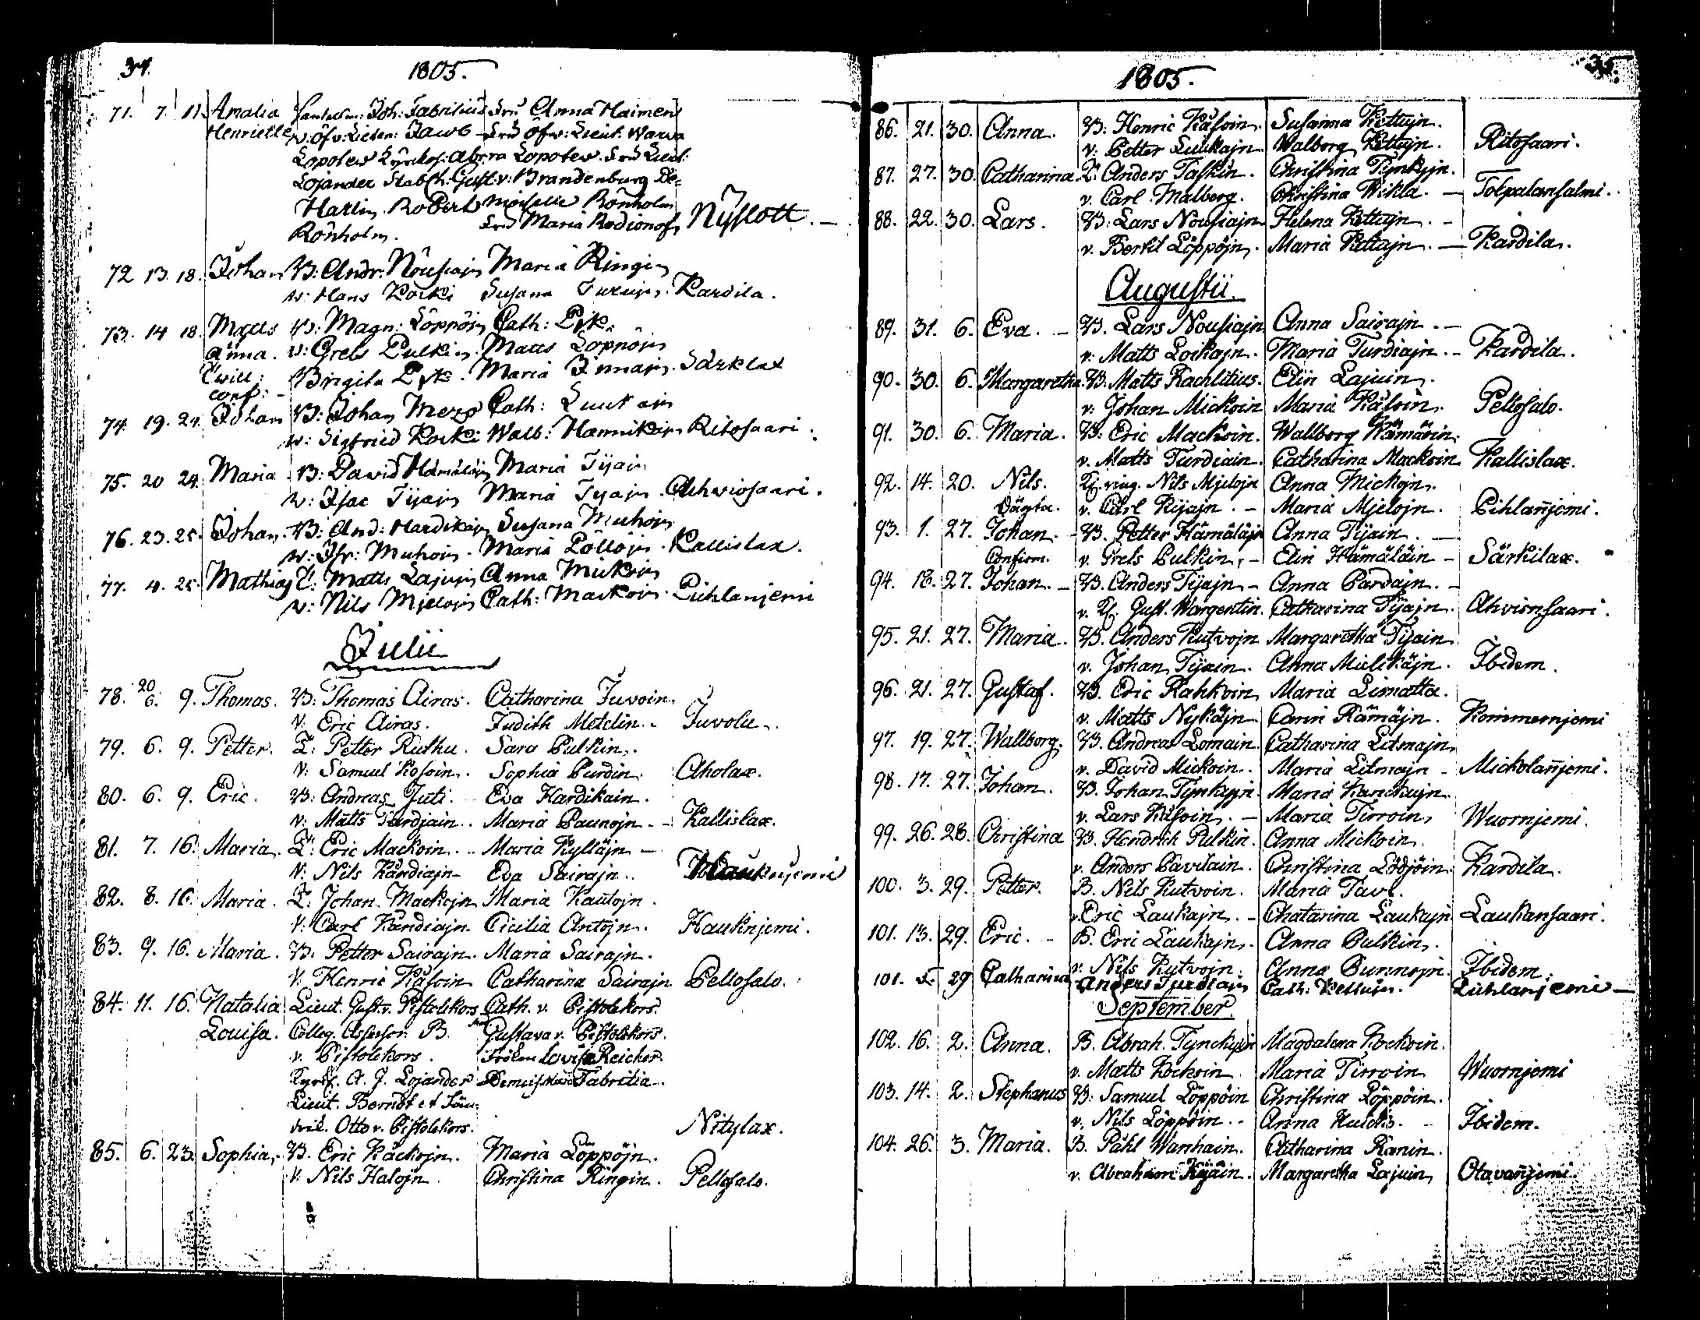 34.
1805.
71. 7 11 Amalia Joh: Fabritius Fru Anna Haimen
Henriette v: Öfv: Lieten: Fru Öfv: Lieut: Warwa
Lopotew Kyrkoh: Abr:ra Lopotew. Fru Lieut:
Lojander Stab Ch: Gust v: Brandenburg De-
Hartin, Robert Moiselle Rönholm
Rönholm. Fru Maria Rodionof Nyslott. —
72 13 18. Johan B: Andr: Nousiajn Maria Ringin
w: Hans Kocki Susana Turujn. Kardila.
73. 14 18. Matts B: Magn: Löppöjn Cath:
Anna. w: Grels Pulkin Matts Löppöjn
Twill: Brigita Maria Särklax
conf: —
74 19. 24. Johan B: Johan Cath: Luukain
w: Sigfried Kock: Walb: Hannikain Ritosaari.
75. 20 24. Maria B: David Hämäläin Maria Tijain
w: Isac Tijain Maria Tijain. Ahviosaari.
76. 23. 25. Johan. B: And: Hardikain Susana Muhoin
w: Muhoin. Maria Pöllöin. Kallislax.
77. 4. 25. Mathias T. Matts Lajuin Anna Mickoin
w: Nils Mjeloin Cath: Mackoin. Pihlanjemi
Julii
78. 20/6. 9. Thomas. B: Thomas Airas. Catharina Juvoin.
v. Eric Airas. Judith Metelin. Juvola.
79. 6. 9. Petter. T: Petter Ruthu. Sara Pulkin.
v: Samuel Kosoin. Sophia Purdin. Aholax.
80. 6. 9. Eric. B: Andreas Juti. Eva Hardikain.
v: Matts Turdiain. Maria Paunojn. Kallislax.
81. 7. 16. Maria. T: Eric Mackoin. Maria Kyltäjn —
v: Nils Kardiajn Eva Sairajn. Haukinjemi
82. 8. 16. Maria. T. Johan Mackojn Maria Kautojn.
v: Carl Kardiajn Cicilia Antojn. Haukinjemi.
83. 9. 16. Maria. B: Petter Sairajn. Maria Sairajn.
v: Henric Käsoin Catharina Sairajn Pellosalo.
84. 11. 16. Natalia Lieut. Gust: v. Pistolekors. Cath. v. Pistolekors.
Louisa. Colleg. Assessor. B. Gustava v. Pistolekors.
v. Pistolekors. Fröken Lovisa Reicher
A. J. Lojander Fabritia.
Lieut. Berndt et
Otto v. Pistolekors. Nitylax.
85. 6. 23. Sophia. B. Eric Käckojn. Maria Löppöjn.
v: Nils Halojn. Christina Ringin. Pellosalo.
35.
1805.
86. 21. 30. Anna. B: Henric Käsoin. Susanna Kettujn.
v: Petter Luukajn Walborg Kettujn. Ritosaari.
87. 27. 30. Catharina T: Anders Taskin. Christina Tynkyjn.
v. Carl Malberg. Christina Wikla. — Tolpalansalmi.
88. 22. 30. Lars. B: Lars Nousiajn Helena Kettujn. —
v. Bertil Löppöjn. Maria Kettujn. — Kardila.
Augustii.
89. 31. 6. Eva. — B. Lars Nousiajn Anna Sairajn. —
v. Matts Loikajn. Maria Turdiajn. — Kardila.
90. 30. 6. Margaretha B. Matts Rachlitius. Elin Lajuin.
v. Johan Mickoin Maria Käsoin. Pellosalo.
91. 30. 6. Maria. B: Eric Mackoin. Wallborg Hämärin.
v. Matts Turdiain. Catharina Mackoin Kallislax.
92. 14. 20. Nils. Nils Mjelojn Anna Mickojn.
v. Carl Kijajn. — Maria Mjelojn. Pihlanjemi.
93. 1. 27. Johan. B. Petter Hämäläin Anna Tijain. —
Confirm. v. Grels Pulkin. — Elin Hämäläin — Särkilax.
94. 18. 27. Johan — B. Anders Tijajn — Anna Pardajn. —
v. Gust. Wargentin. Catharina Tijajn. Ahvionsaari.
95. 21. 27. Maria. B. Anders Kutvojn Margaretha Tijain
v. Johan Tijain. Anna Mielikäjn. Ibidem.
96. 21. 27. Gustaf. B. Eric Rahkoin Maria Limatta.
v. Matts Nykäjn Carin Rämäjn. Kommernjemi
97. 19. 27. Wallborg. B. Andreas Lomain Catharina Litmajn
v. David Mickoin. Maria Litmajn — Mickolanjemi.
98. 17. 27. Johan. B. Johan Tynkyjn Maria Kanckujn
v. Lars Käsoin. — Maria Tirroin Wuornjemi.
99. 26. 28. Christina B. Hendrich Pulkin. Anna Mickoin.
v. Anders Pavilain. Christina Löppöin. Kardila.
100. 3. 29. Petter. B. Nils Kutvoin. Maria Tavi.
v. Eric Laukajn. — Chatarina Laukajn Laukansaari.
101. 13. 29. Eric. — B. Eric Laukajn. Anna Pulkin.
v. Nils Kutvojn. Anna Punnojn. Ibidem.
101. 5. 29 Catharina Anders Turdiajn Cath: Kettujn. Pihlanjemi —
September.
102. 16. 2. Anna. B. Abrah. Tynckyjn Magdalena Kockoin.
v. Matts Kockoin. Maria Tirroin Wuornjemi
103. 14. 2. Stephanus B. Samuel Löppöin Christina Löppöin.
v. Nils Löppöin. — Anna Ibidem.
104. 26. 3. Maria. B. Påhl Wanhain. Catharina Ranin.
v. Abraham Kijäin. Margaretha Lajuin Otavanjemi.